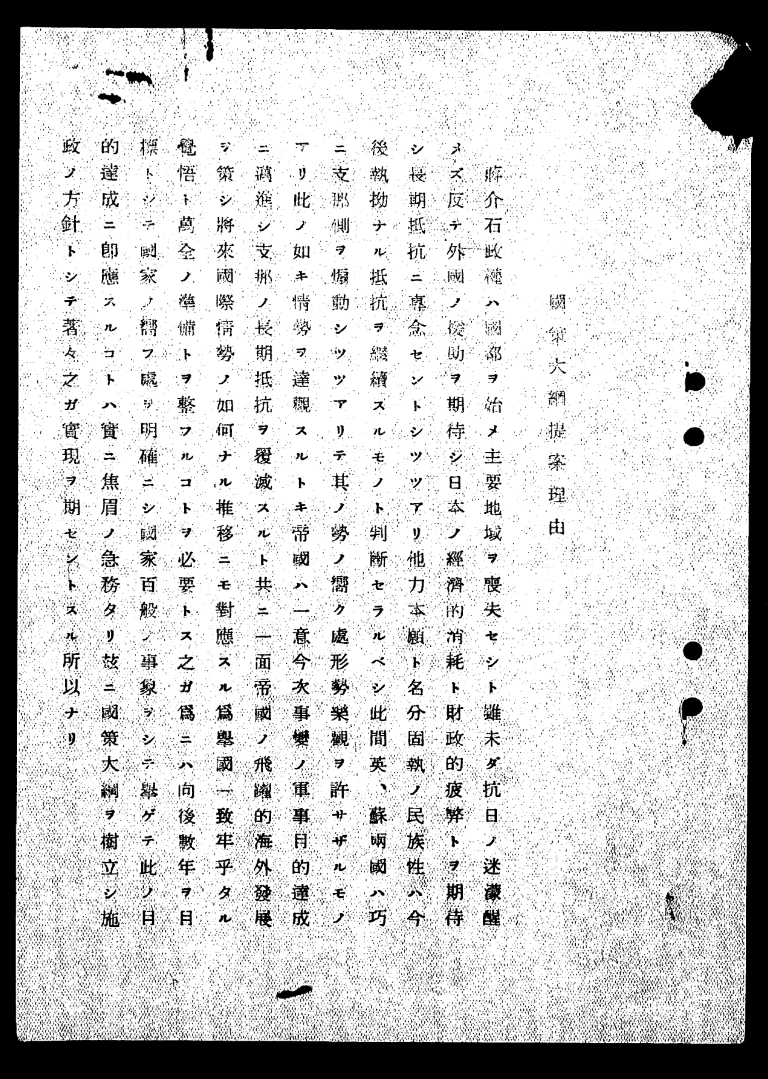 國策大綱提案理由
蔣介石政權ハ國都ヲ始メ主要地域ヲ喪失セシト雖未ダ抗日ノ迷濛醒
メズ反テ外國ノ援助ヲ期待シ日本ノ經濟的消耗ト財政的疲弊トヲ期待
シ長期抵抗ニ專念セントシツツアリ他力本願ト名分固執ノ民族性ハ今
後執拗ナル抵抗ヲ繼續スルモノト判斷セラルベシ此間英、蘇兩國ハ巧
ニ支那側ヲ煽動シツツアリテ其ノ勢ノ嚮ク處形勢樂觀ヲ許サザルモノ
アリ此ノ如キ情勢ヲ達觀スルトキ帝國ハ一意今次事變ノ軍事目的達成
ニ邁進シ支那ノ長期抵抗ヲ覆滅スルト共ニ一面帝國ノ飛躍的海外發展
ヲ策シ將來國際情勢ノ如何ナル推移ニモ對應スル爲擧國一致牢乎タル
覺悟ト萬全ノ準備トヲ整フルコトヲ必要トス之ガ爲ニハ向後數年ヲ目
標トシテ國家ノ嚮フ處ヲ明確ニシ國家百般ノ事象ヲシテ擧ゲテ此ノ目
的達成ニ卽應スルコトハ實ニ焦眉ノ急務タリ玆ニ國策大綱ヲ樹立シ施
政ノ方針トシテ著々之ガ實現ヲ期セントスル所以ナリ